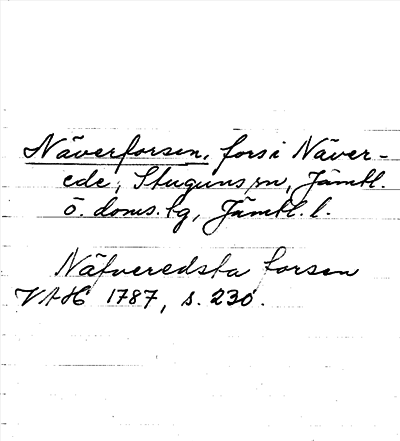 Näverforsen, fors i Näver-
ede, Stuguns sn, Jämtl.
ö. doms. tg, Jämtl. l.
Näfveredsta forsen
VAH 1787, s. 230.